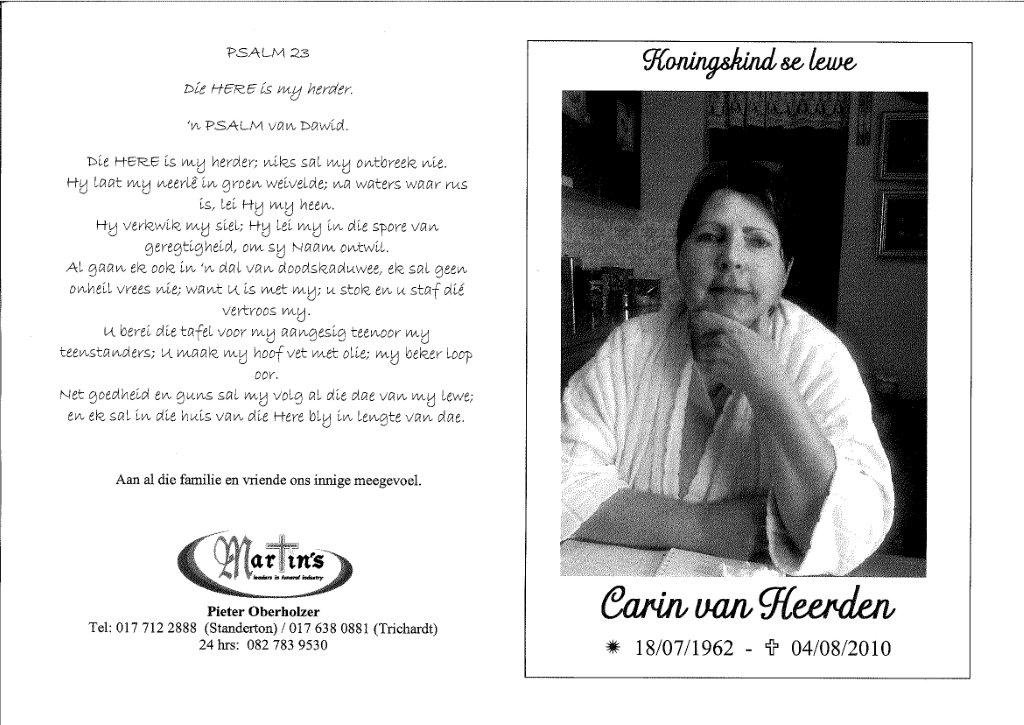 PSALM 23
Die HERE is my herder.
‘n PSALM van Dawid.
Die HERE is my herder; niks sal my ontbreek nie.
Hy laat my neerlê in groen weivelde; na waters waar rus
is, lei Hy my heen.
Hy verkwik my siel; Hy lei my in die spore van
geregtigheid, om sy Naam ontwil.
Al gaan ek ook in ‘n dal van doodskaduwee, ek sal geen
onheil vrees nie; want U is met my; u stok en u staf dié
vertroos my.
U berei die tafel voor my aangesig teenoor my
teenstanders; U maak my hoof vet met olie; my beker loop
oor.
Net goedheid en guns sal my volg al die dae van my lewe;
en ek sal in die huis van die Here bly in lengte van dae.
Aan al die familie en vriende ons innige meegevoel.
Martin's
leaders in funeral industry
Pieter Oberholzer
Tel: 017 712 2888 (Standerton) / 017 638 0881 (Trichardt)
24 hrs: 082 783 9530
Koningskind se lewe
Carin van Heerden
✷ 18/07/1962 - ✞ 04/08/2010